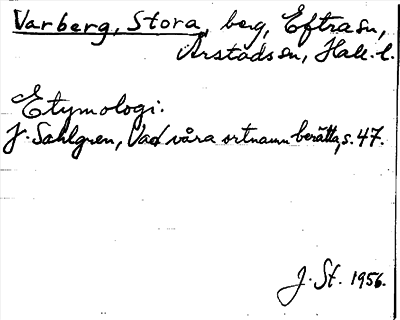 Varberg, Stora, berg, Eftra sn,
Årstads sn, Hall. l.
Etymologi:
J. Sahlgren, Vad våra ortnamn berätta, s. 47.
J. St. 1956.